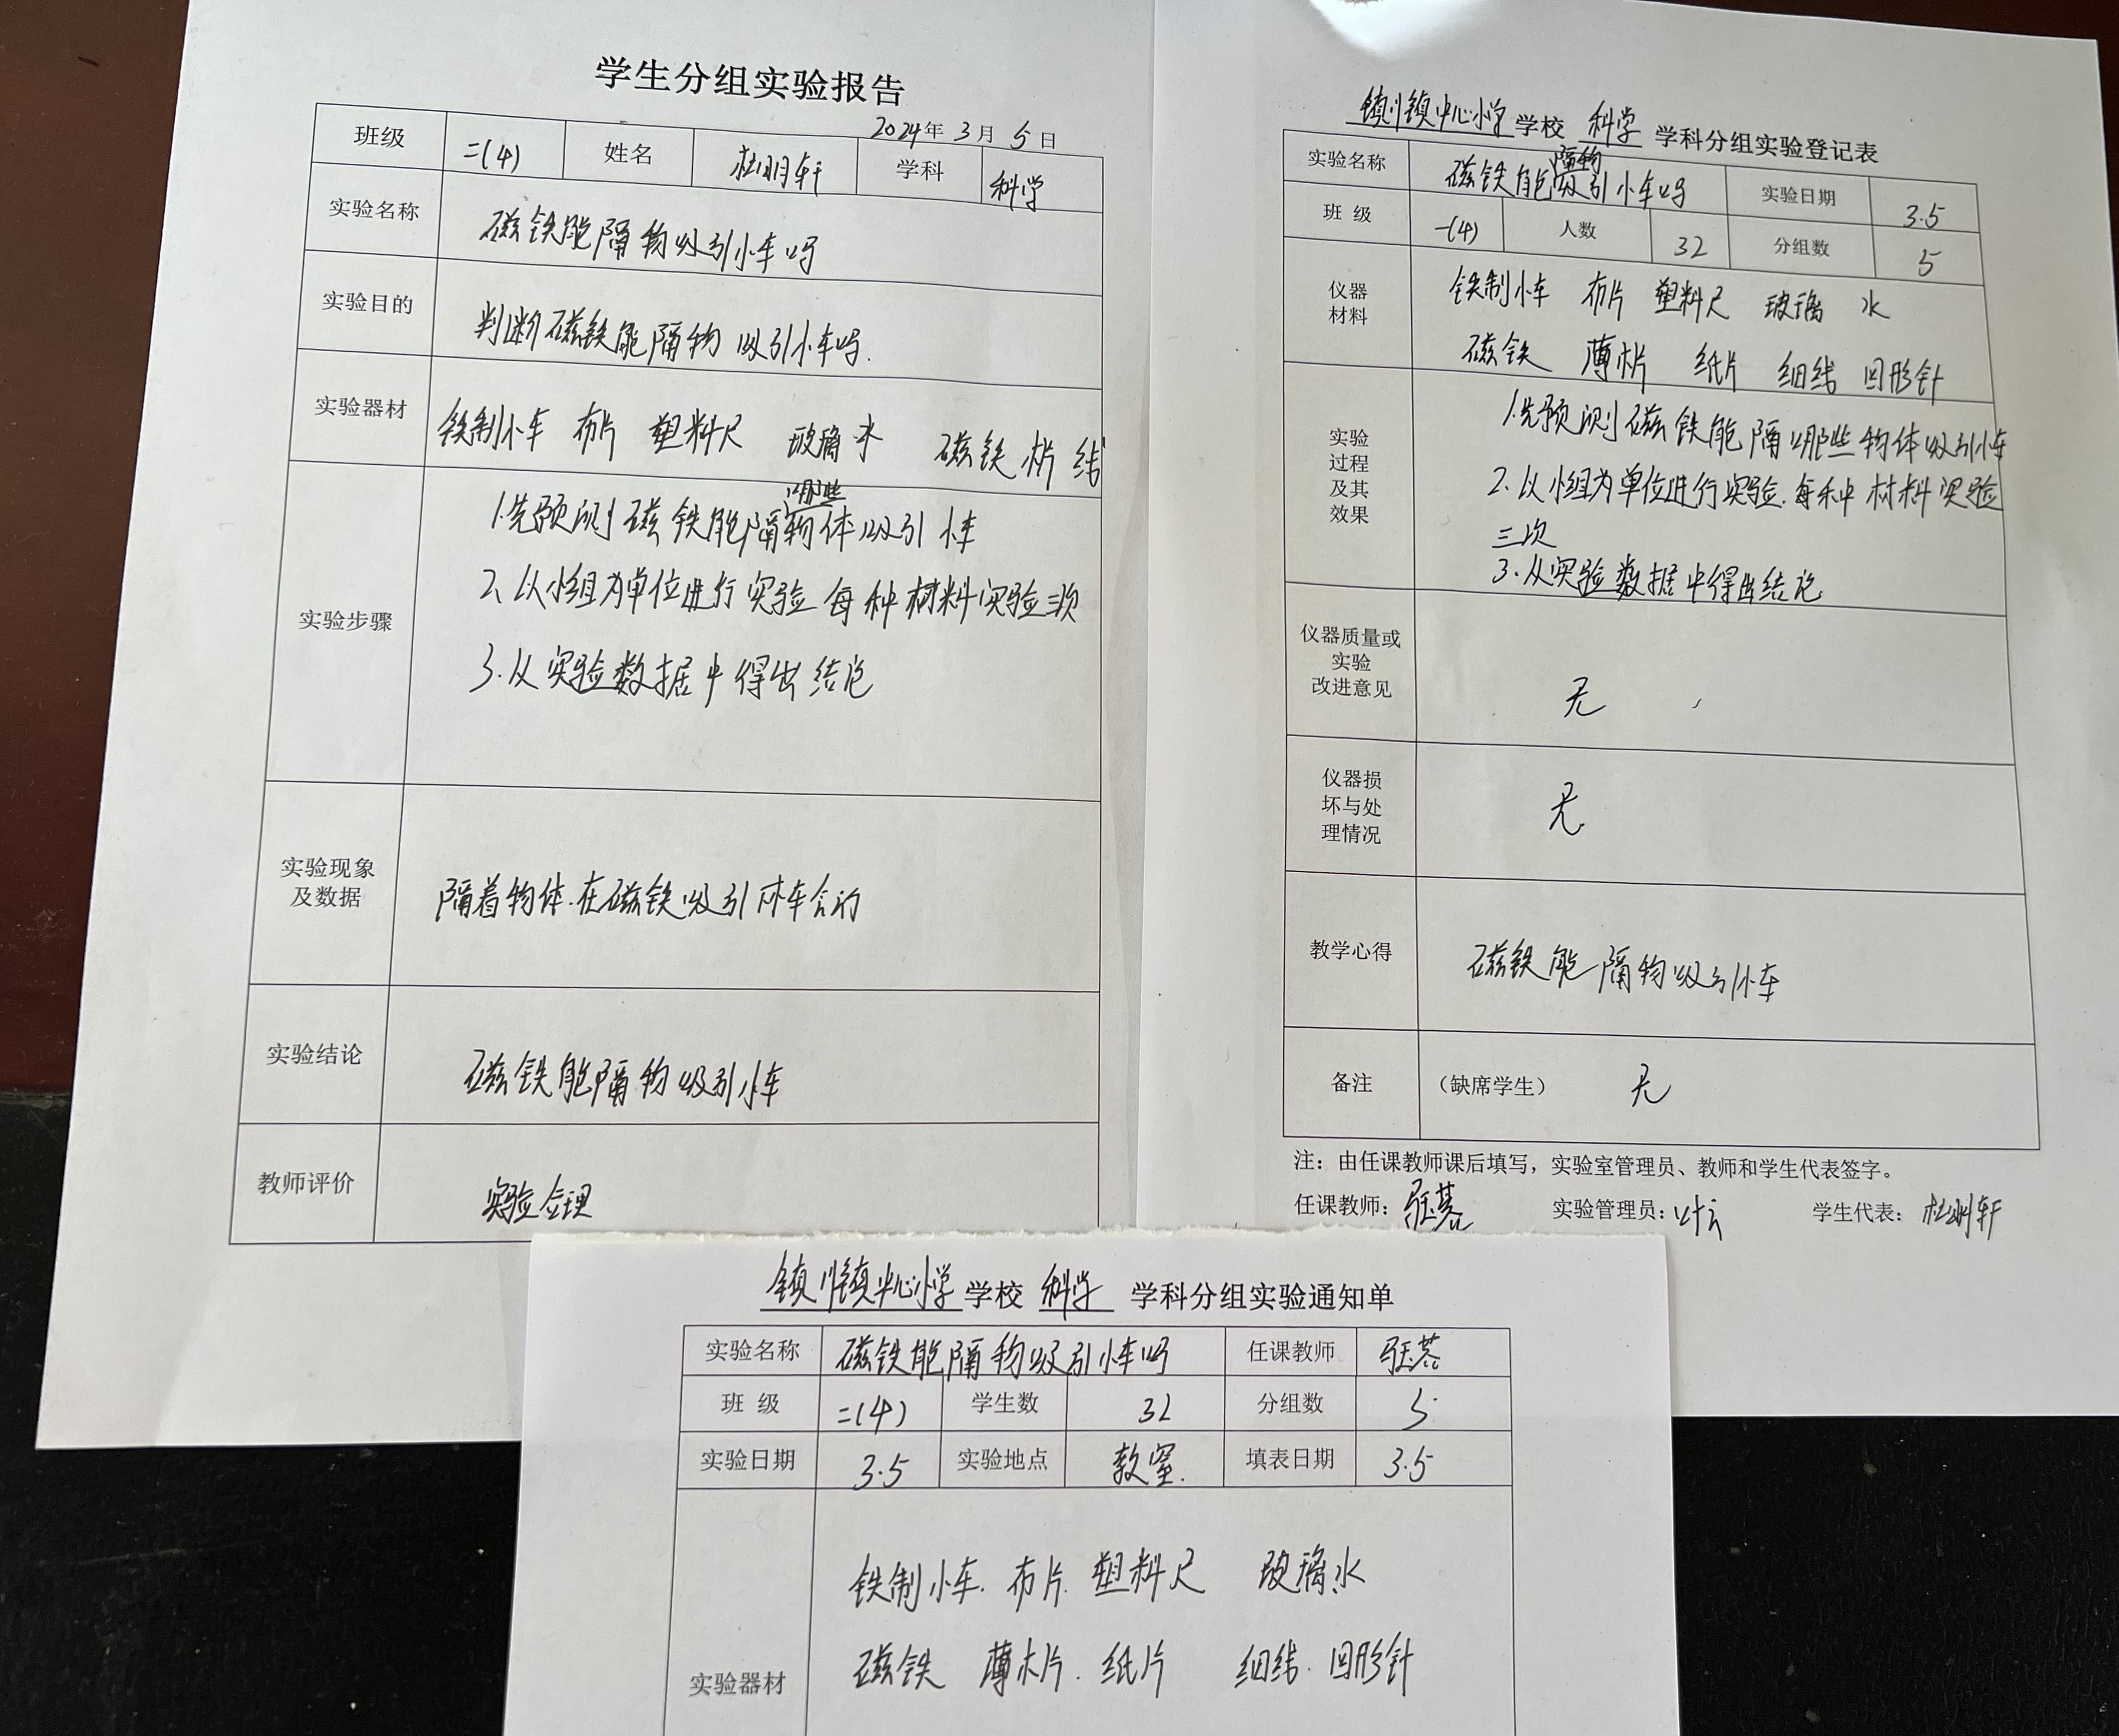 学生分组实验报告
2024年 3月 5日
班级 二(4) 姓名 杜明轩 学科 科学
实验名称 磁铁能隔物吸引小车吗
实验目的 判断磁铁能隔物吸引小车吗.
实验器材 铁制小车 布片 塑料尺 玻璃 水 磁铁 木片 线
实验步骤
1.先预测磁铁能隔哪些物体吸引小车
2、以小组为单位进行实验 每种材料实验三次
3.从实验数据中得出结论
实验现象
及数据
隔着物体.在磁铁吸引小车
实验结论 磁铁能隔物吸引小车
教师评价 实验合理
镇川镇中心小学学校 科学 学科分组实验登记表
实验名称 磁铁能隔物吸引小车吗 实验日期 3.5
班 级 一(4) 人数 32 分组数 5
仪器
材料
铁制小车 布片 塑料尺 玻璃 水
磁铁 薄木片 纸片 细线 回形针
实验
过程
及其
效果
1.先预测磁铁能隔哪些物体吸引小车
2.以小组为单位进行实验.每种材料实验
三次
3.从实验数据中得出结论
仪器质量或
实验
改进意见
无
仪器损
坏与处
理情况
无
教学心得 磁铁能隔物吸引小车
备注 (缺席学生) 无
注：由任课教师课后填写，实验室管理员、教师和学生代表签字。
任课教师： 实验管理员： 学生代表：杜明轩
镇川镇中心小学学校 科学 学科分组实验通知单
实验名称 磁铁能隔物吸引小车吗 任课教师
班 级 二(4) 学生数 32 分组数 5
实验日期 3.5 实验地点 教室. 填表日期 3.5
实验器材
铁制小车. 布片. 塑料尺 玻璃 水
磁铁 薄木片. 纸片 细线. 回形针